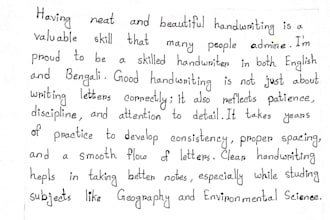 Having neat and beautiful handwriting is a
valuable skill that many people admire. I'm
proud to be a skilled handwriter in both English
and Bengali. Good handwriting is not just about
writing letters correctly; it also reflects patience,
discipline, and attention to detail. It takes years
of practice to develop consistency, proper spacing,
and a smooth flow of letters. Clear handwriting
hepls in taking better notes, especially while studing
subjects like Geography and Environmental Science.